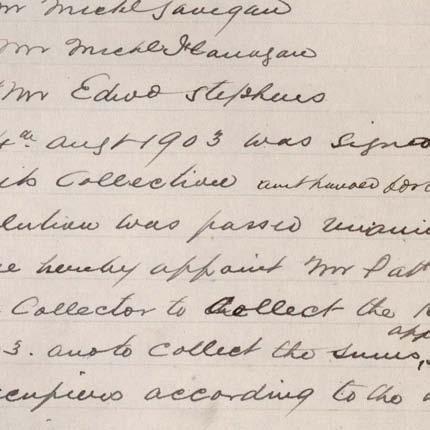 Mr Michl Gavegan
Mr Michl Flanagan
Mr Edwd Stephens
4th augt 1903 was signe
its Collection and handed
lution was passed unani
e hereby appoint Mr Patt
Collector to Collect the
app
3. and to collect the sums,
ccupiers according to the